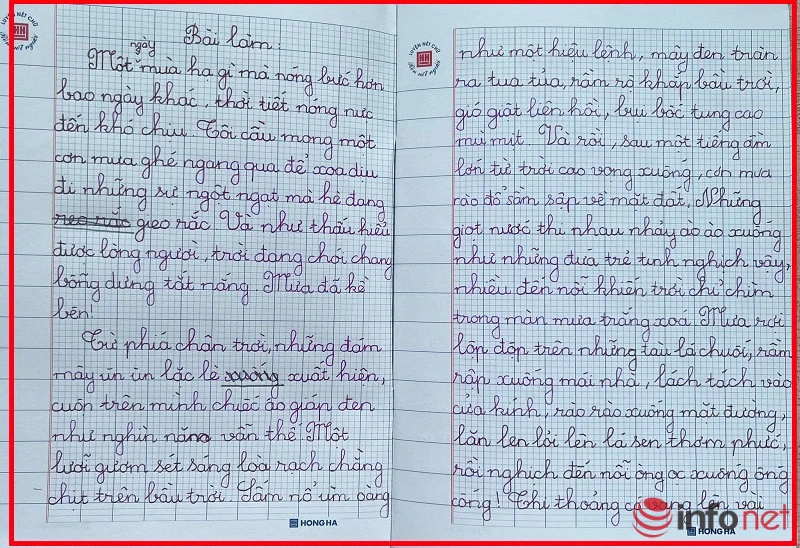 Bài làm:
ngày
Một mùa hạ gì mà nóng bức hơn
bao ngày khác, thời tiết nóng nực
đến khó chịu. Tôi cầu mong một
cơn mưa ghé ngang qua để xoa dịu
đi những sự ngột ngạt mà hè đang
gieo rắc. Và như thấu hiểu
được lòng người, trời đang chói chang
bỗng dưng tắt nắng. Mưa đã kề
bên!
Từ phía chân trời, những đám
mây ùn ùn lặc lè xuất hiện,
cuộn trên mình chiếc áo giáp đen
như nghìn năm vẫn thế. Một
lưỡi gươm sét sáng loà rạch chằng
chịt trên bầu trời. Sấm nổ ùm oàng
HONG HA
LUYỆN NÉT CHỮ
RÈN NẾT NGƯỜI
như một hiệu lệnh, mây đen tràn
ra tua tủa, rầm rộ khắp bầu trời,
gió giật liên hồi, bụi bốc tung cao
mù mịt. Và rồi, sau một tiếng ầm
lớn từ trời cao vọng xuống, cơn mưa
rào đổ sầm sập về mặt đất. Những
giọt nước thi nhau nhảy ào ào xuống
như những đứa trẻ tinh nghịch vậy,
nhiều đến nỗi khiến trời chỉ chìm
trong màn mưa trắng xoá. Mưa rơi
lộp độp trên những tàu lá chuối, rầm
rập xuống mái nhà, lách tách vào
cửa kính, rào rào xuống mặt đường,
lăn len lỏi lên lá sen thơm phức,
rồi nghịch đến nỗi òng ọc xuống ống
cống! Thi thoảng có vang lên vài
HONG HA
infonet